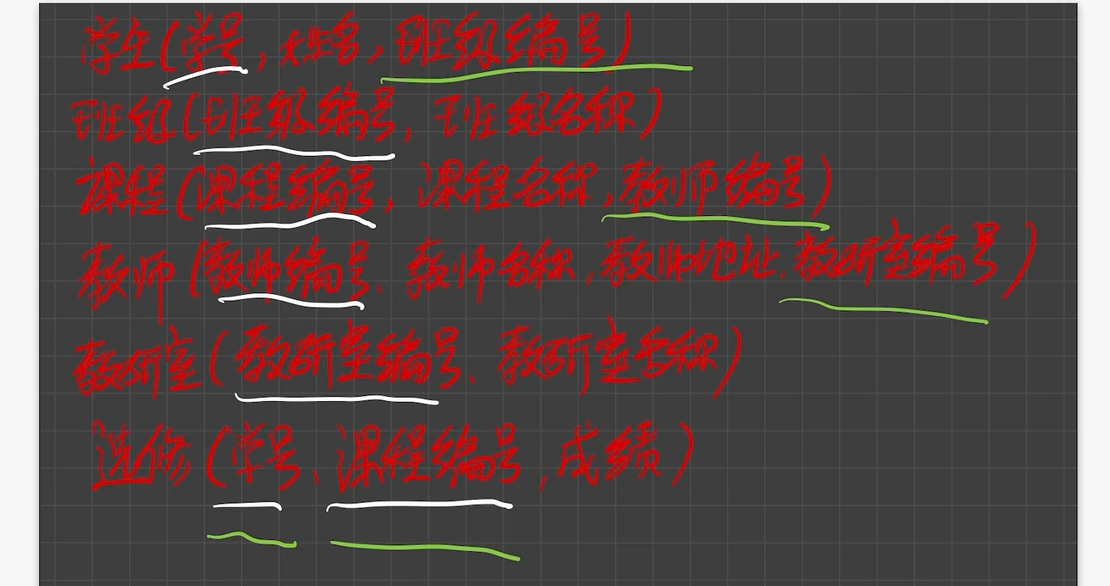 学生(学号,姓名,班级编号)
班级(班级编号,班级名称)
课程(课程编号,课程名称,教师编号)
教师(教师编号、教师名称,教师地址,教研室编号)
教研室(教研室编号、教研室名称)
选修(学号、课程编号,成绩)